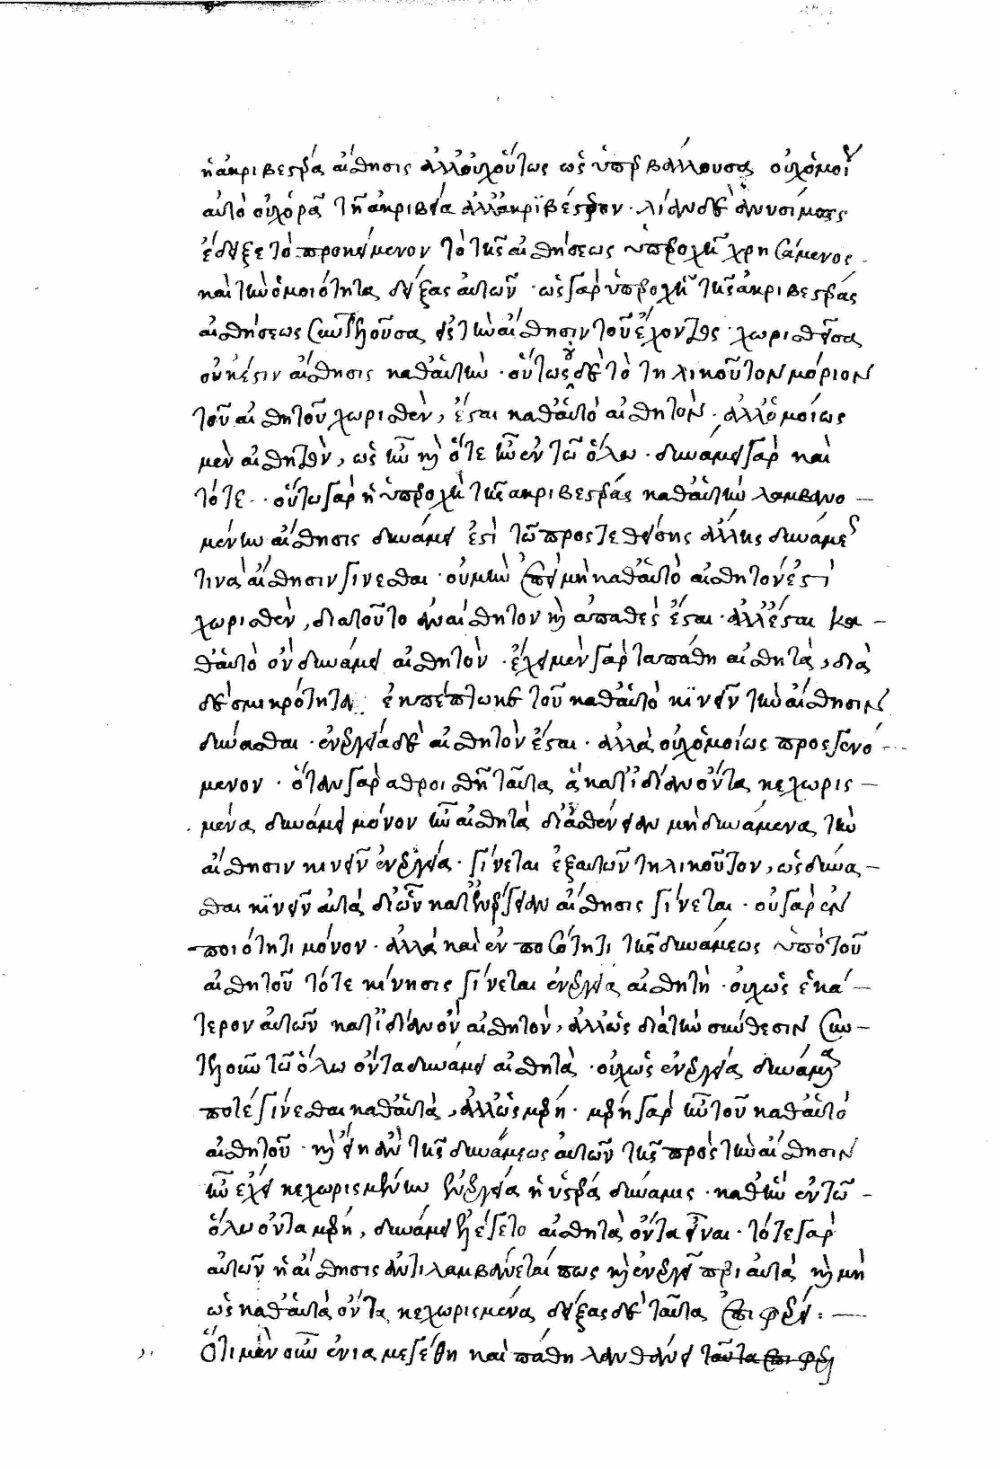 ἡ ἀκριβεστέρα αἴσθησις ἀλλ' οὐχ οὕτως ὡς ὑπερβάλλουσα οὐχ ὁμοῦ
αὐτὸ οὐχ ὁρᾶ τῆ ἀκριβεία ἀλλ' ἀκριβέστερον · λίαν δὲ ἀνυσίμως
ἔδειξε τὸ προκείμενον τὸ τῆς αἰσθήσεως ὑπεροχῆ χρησάμενος
καὶ τὴν ὁμοιότητα δείξας αὐτῶν · ὡς γὰρ ὑπεροχὴ τῆς ἀκριβεστέρας
αἰσθήσεως συντιθοῦσα εἰς τὴν αἴσθησιν τοῦ ἔχοντος · χωρισθεῖσα
οὐκέστιν αἴσθησις καθ' αὑτὴν · οὕτως οὐδὲ τὸ τηλικοῦτον μόριον
τοῦ αἰσθητοῦ χωρισθὲν, ἔσται καθ' αὑτὸ αἰσθητὸν · ἀλλ' ὁμοίως
μὲν αἰσθητὸν, ὡς ἦν καὶ ὅτε ἦν ἐν τῶ ὅλω · δυνάμει γὰρ καὶ
τότε · οὕτω γὰρ ἡ ὑπεροχὴ τῆς ἀκριβεστέρας καθ' αὑτὴν λαμβανο—
μένη αἴσθησις δυνάμει ἐστὶ τῶ προστεθείσης ἄλλης δυνάμεως
τινὰ αἴσθησιν γίνεσθαι · οὐ μὴν ἐπεὶ μὴ καθ' αὑτὸ αἰσθητόν ἐστι
χωρισθὲν, διατοῦτο ἀναίσθητον καὶ ἀπαθὲς ἔσται · ἀλλ' ἔσται κα—
θ' αὑτὸ ὂν δυνάμει αἰσθητὸν · ἔχει μὲν γὰρ τὰ πάθη αἰσθητὰ, διὰ
δὲ σμικρότητα ἐκπέπτωκε τοῦ καθ' αὑτὸ κινεῖν τὴν αἴσθησιν
δύνασθαι · ἐνεργεία δὲ αἰσθητὸν ἔσται · ἀλλὰ οὐχ ὁμοίως προσγενό—
μενον · ὅταν γὰρ ἀθροισθῆ ταῦτα ἃ κατ' ἰδίαν ὄντα κεχωρισ—
μένα δυνάμει μόνον ἦν αἰσθητὰ δι' ἀσθένειαν μὴ δυνάμενα τὴν
αἴσθησιν κινεῖν ἐνεργεία · γίνεται ἐξ αὐτῶν τηλικοῦτον, ὡς δύνα—
σθαι κινεῖν αὐτὰ δι' ὧν κατ' ἐνέργειαν αἴσθησις γίνεται · οὐ γὰρ ἐν
ποιότητι μόνον · ἀλλὰ καὶ ἐν ποσότητι τῆς δυνάμεως ὑπὸ τοῦ
αἰσθητοῦ τότε κίνησις γίνεται ἐνεργεία αἰσθητὴ · οὐχ ὡς ἑκά—
τερον αὐτῶν κατ' ἰδίαν ὂν αἰσθητὸν, ἀλλ' ὡς διὰ τὴν σύνθεσιν συν—
τιθοῦν τῶ ὅλω ὄντα δυνάμει αἰσθητὰ · οὐχ ὡς ἐνεργεία δυνάμενα
ποτὲ γίνεσθαι καθ' αὑτὰ, ἀλλ' ὡς μέρη · μέρη γὰρ ἦν τοῦ καθ' αὑτὸ
αἰσθητοῦ · καὶ εἴη ἂν τῆς δυνάμεως αὐτῶν τῆς πρὸς τὴν αἴσθησιν
ἣν ἔχει κεχωρισμένων ἐνεργεία ἡ ὑστέρα δύναμις · καθ' ἣν ἐν τῶ —
ὅλω ὄντα μέρη, δυνάμει ἐλέγετο αἰσθητὰ ὄντα εἶναι · τότε γὰρ
αὐτῶν ἡ αἴσθησις ἀντιλαμβάνεταί πως καὶ ἐνεργεῖ περὶ αὐτὰ καὶ μὴ
ὡς καθ' αὑτὰ ὄντα κεχωρισμένα δείξας δὲ ταῦτα ἐπιφέρει : —
Ὅτι μὲν οὖν ἔνια μεγέθη καὶ πάθη λανθάνει ταῦτα ἐπιφέρει